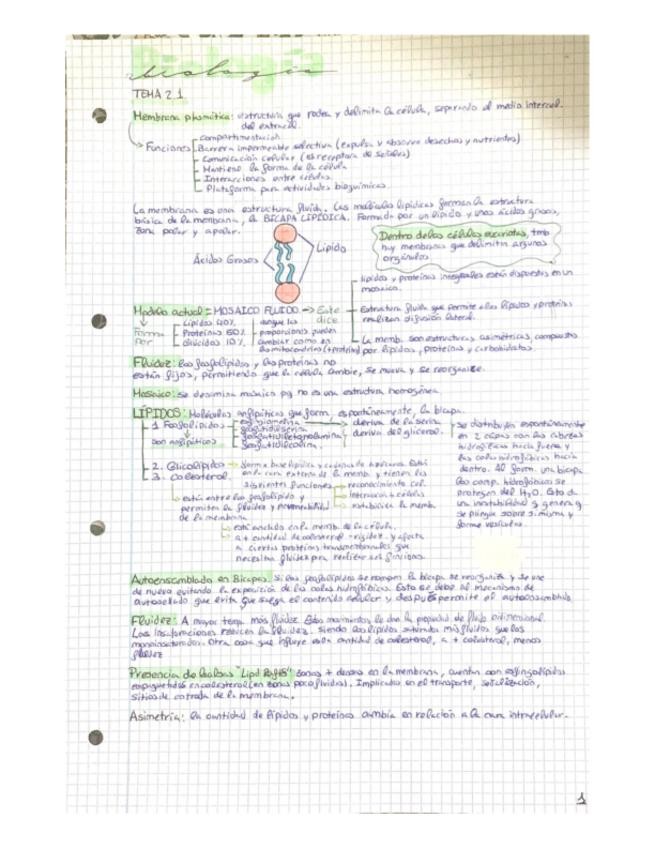 biología
TEMA 2.1
Membrana plasmática: estructura que rodea y delimita la célula, separando al medio intracel.
del extracel.
Funciones
Compartimentación
Barrera impermeable selectiva (expulsa y absorbe desechos y nutrientes)
Comunicación celular (es receptora de señales)
Mantiene la forma de la célula
Interacciones entre células.
Plataforma para actividades bioquímicas.
La membrana es una estructura fluida. Las moléculas lipídicas forman la estructura
básica de la membrana, la BICAPA LIPÍDICA. Formada por un lípido y unos ácidos grasos,
zona polar y apolar.
Ácidos Grasos
Lípido
Dentro de las células eucariotas, tmb
hay membranas que delimitan algunos
orgánulos.
Modelo actual = MOSAICO FLUIDO. → Este dice
Forma por
Lípidos 40%
Proteínas 50%
Glúcidos 10%
aunque las
proporciones pueden
cambiar como en
las mitocondrias (+ proteína)
lípidos y proteínas integrales están dispuestos en un
mosaico.
Estructura fluida que permite a los lípidos y proteínas
realizar difusión lateral.
La memb. son estructuras asimétricas, compuestas
por lípidos, proteínas y carbohidratos.
Fluidez: los fosfolípidos y las proteínas no
están fijos, permitiendo que la célula cambie, se mueva y se reorganize.
Mosaico: se denomina mosaico pq no es una estructura homogénea.
LÍPIDOS: Moléculas anfipáticas que form. espontáneamente, la bicapa.
1. Fosfolípidos
son anfipáticos
esfingomielina
fosfatidilserina → deriva de la serina
fosfatidiletanolamina → deriva del glicerol.
fosfatidilcolina.
se distribuyen espontáneamente
en 2 capas con las cabezas
hidrofílicas hacia fuera y
las colas hidrofóbicas hacia
dentro. Al form. una bicapa
los comp. hidrofóbicos se
protegen del H2O. Esto da
una inestabilidad y genera q
se pliegue sobre si misma y
forme vesículas.
2. Glicolípidos
en la cara externa de la memb. y tienen las
siguientes funciones
reconocimiento cel.
interacción células
estabiliza la memb.
3. Colesterol.
están entre los fosfolípidos y
permiten la fluidez y permeabilidad
de la membrana
está anclado en la memb. de la célula.
a + cantidad de colesterol + rigidez y afecta
a ciertas proteínas transmembranales que
necesitan fluidez para realizar sus funciones.
Autoensamblado en Bicapas. Si los fosfolípidos se rompen la bicapa se reorganiza y se une
de nuevo evitando la exposición de las colas hidrofóbicas. Esto se debe al mecanismo de
autosellado que evita que salga el contenido celular y después permite el autoensamblaje
Fluidez: A mayor temp. más fluidez. Estos movimientos le dan la propiedad de fluido bidimensional.
Las insaturaciones reducen la fluidez, siendo los lípidos saturados más fluidos que los
monoinsaturados. Otra cosa que influye es la cantidad de colesterol, a + colesterol, menos
fluidez
Presencia de balsas "Lipid Rafts" zonas + densas en la membrana, cuentan con esfingolípidos
empaquetados en colesterol (en zonas poco fluidas). Implicadas en el transporte, señalización,
sitios de entrada de la membrana.
Asimetría: la cantidad de lípidos y proteínas cambia en relación a la cara intracelular.
1